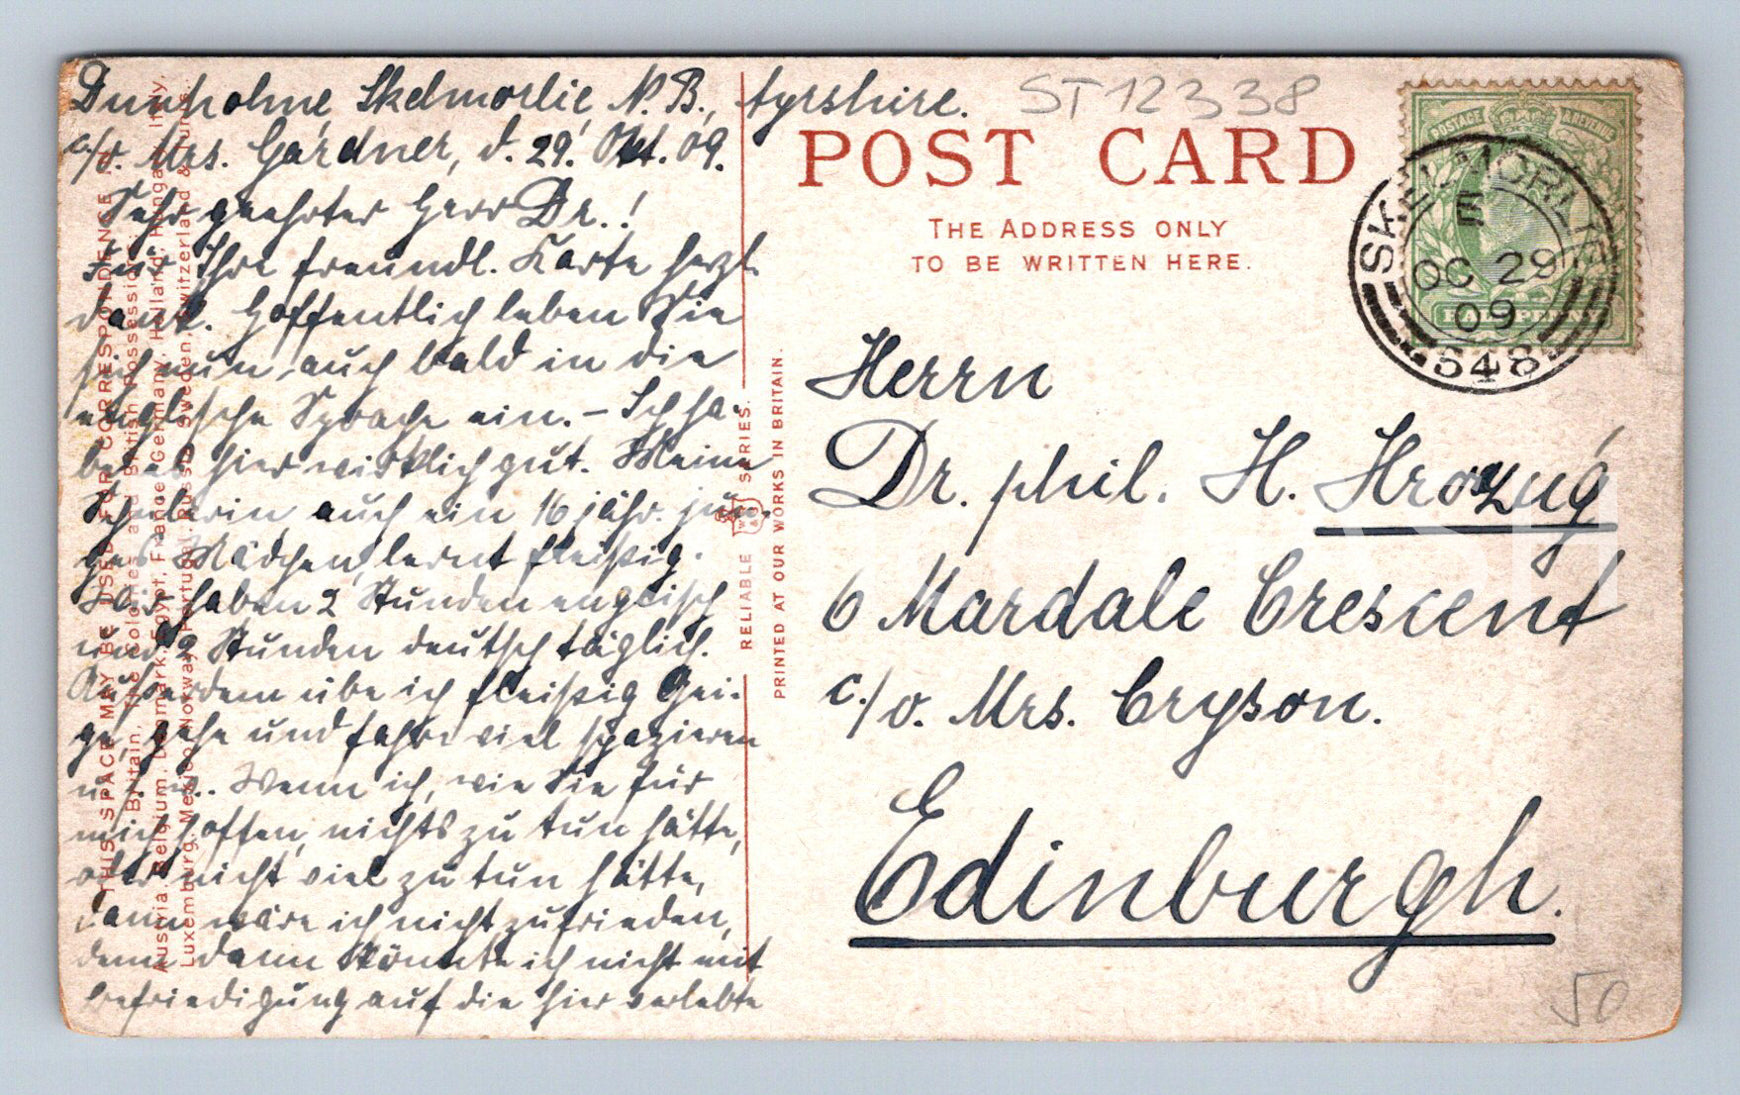 Dunholme, Skelmorlie, N. B., Ayrshire.
c/o. Mrs. Gardner, d. 29. Okt. 09.
Sehr geehrter Herr Dr.!
Für Ihre freundl. Karte herzl.
Dank. Hoffentlich leben Sie
sich nun auch bald in die
englische Sprache ein. – Ich ha-
be es hier wirklich gut. Meine
Schülerin, auch ein 16 jähr. jun-
ges Mädchen, lernt fleißig.
Wir haben 2 Stunden englisch
und 2 Stunden deutsch täglich.
Außerdem übe ich fleißig Gei-
ge, gehe und fahre viel spazieren
u. s. w.. Wenn ich, wie Sie für
mich hoffen, nichts zu tun hätte,
oder nicht viel zu tun hätte,
dann wäre ich nicht zufrieden,
denn dann könnte ich nicht mit
Befriedigung auf die hier verlebte
THIS SPACE MAY BE USED FOR CORRESPONDENCE
Britain, the Colonies and British Possessions,
Austria, Belgium, Denmark, Egypt, France, Germany, Holland, Hungary, Italy,
Luxemburg, Mexico, Norway, Portugal, Russia, Sweden, Switzerland &
RELIABLE W R & S SERIES.
PRINTED AT OUR WORKS IN BRITAIN.
ST12338
POST CARD
THE ADDRESS ONLY
TO BE WRITTEN HERE.
POSTAGE & REVENUE
HALFPENNY
SKELMORLIE
E
OC 29
09
S48
Herrn
Dr. phil. H.
6 Mardale Crescent
c./o. Mrs. Cryson.
Edinburgh.
50